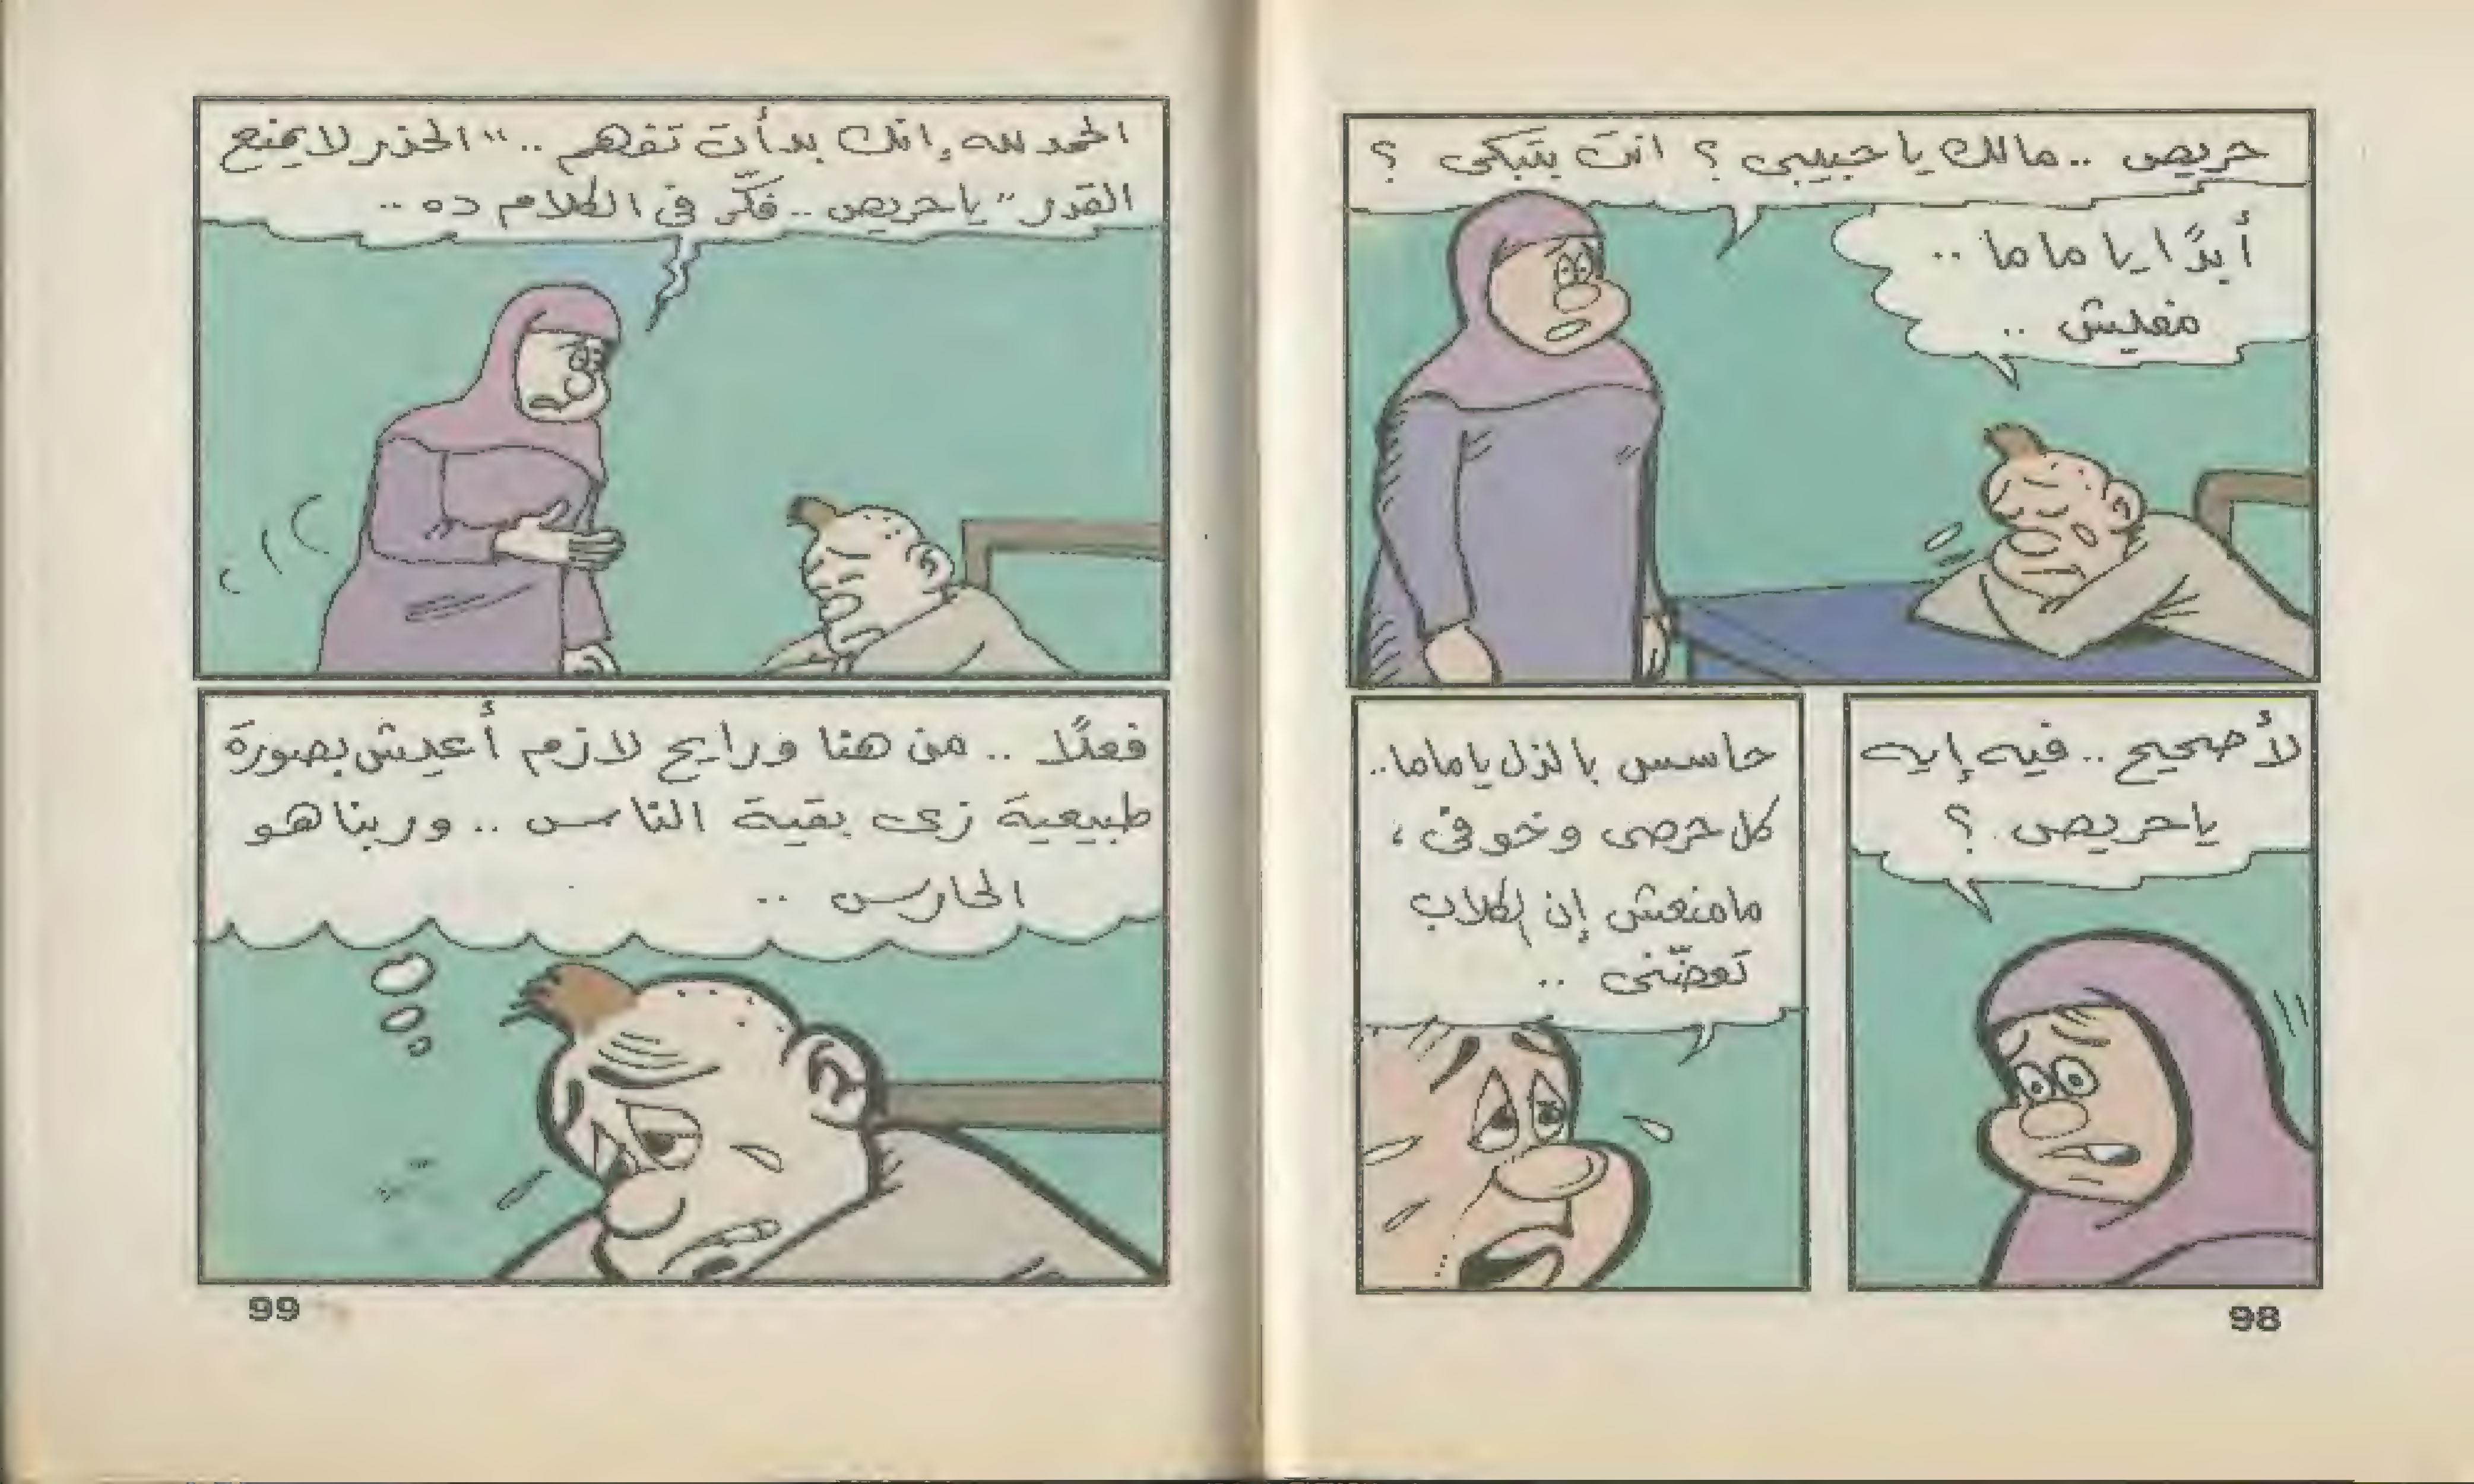 حريص .. مالك يا حبيبي ؟ انت بتبكى ؟
أبدًا يا ماما ..
مفليش ..
لأ صحيح .. فيه إيه
يا حريص ؟
حاسس بالذل يا ماما ..
كل حرصى وخوفى ،
مامنعش إن الكلاب
تعضّنى ..
98
الحمد لله إنك بدأت تفهم .. "الحذر لا يمنع
القدر" يا حريص .. فكّر فى الكلام ده ..
فعلًا .. من هنا ورايح لازم أعيش بصورة
طبيعية زى بقية الناس .. وربنا هو
الحارس ..
99